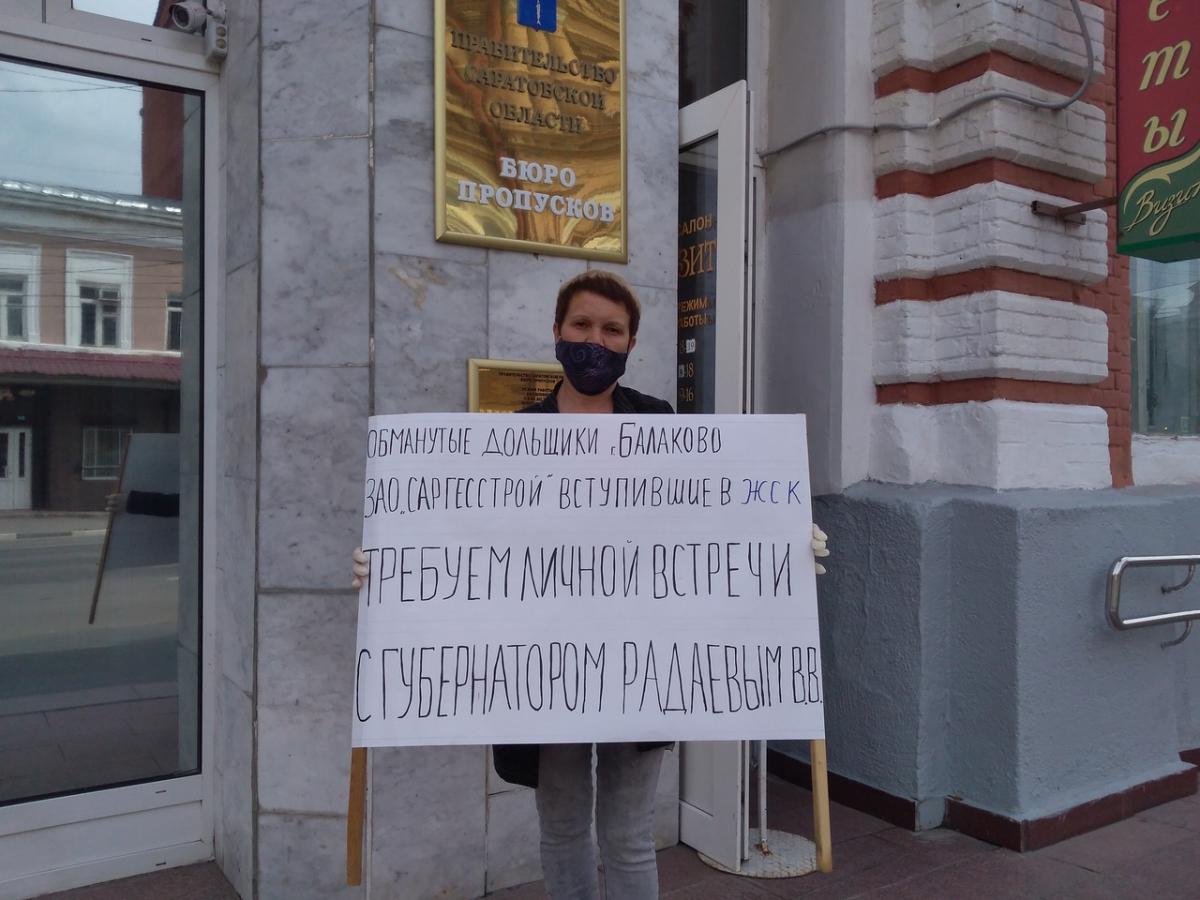 ПРАВИТЕЛЬСТВО
САРАТОВСКОЙ
ОБЛАСТИ
БЮРО
ПРОПУСКОВ
ЕЖИМ
АБОТЫ
ты
Визи
ОБМАНУТЫЕ ДОЛЬЩИКИ г. БАЛАКОВО
ЗАО „САРГЕССТРОЙ" ВСТУПИВШИЕ В ЖСК
ТРЕБУЕМ ЛИЧНОЙ ВСТРЕЧИ
С ГУБЕРНАТОРОМ РАДАЕВЫМ В.В.